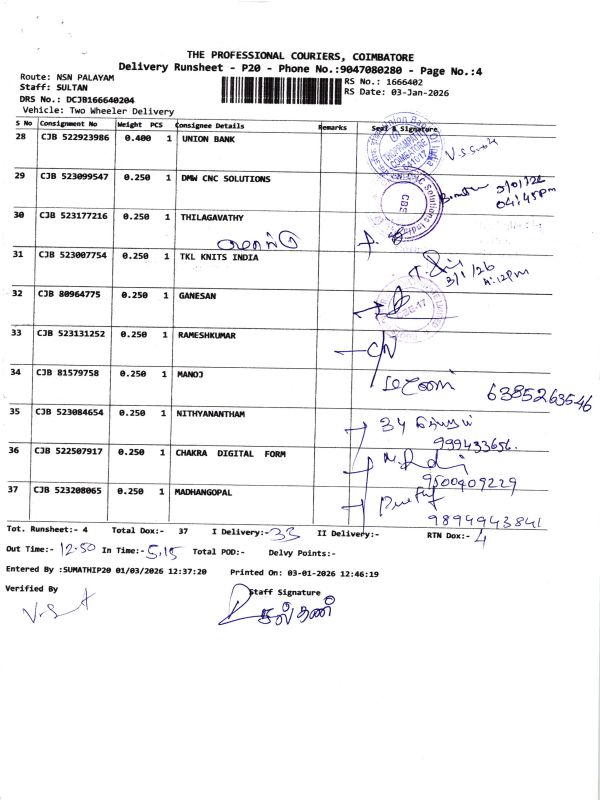 THE PROFESSIONAL COURIERS, COIMBATORE
Delivery Runsheet - P20 - Phone No.:9047080280 - Page No.:4
Route: NSN PALAYAM RS No.: 1666402
Staff: SULTAN RS Date: 03-Jan-2026
DRS No.: DCJB166640204
Vehicle: Two Wheeler Delivery
S No Consignment No Weight PCS Consignee Details Remarks Seal & Signature
28 CJB 522923986 0.400 1 UNION BANK
29 CJB 523099547 0.250 1 DMW CNC SOLUTIONS 3/01/26
04:45pm
30 CJB 523177216 0.250 1 THILAGAVATHY
31 CJB 523007754 0.250 1 TKL KNITS INDIA
3/1/26
4:12pm
32 CJB 80964775 0.250 1 GANESAN
33 CJB 523131252 0.250 1 RAMESHKUMAR
34 CJB 81579758 0.250 1 MANOJ
6385263546
35 CJB 523084654 0.250 1 NITHYANANTHAM
999433656.
36 CJB 522507917 0.250 1 CHAKRA DIGITAL FORM
9500409229
37 CJB 523208065 0.250 1 MADHANGOPAL
9894943841
Tot. Runsheet:- 4 Total Dox:- 37 I Delivery:- 33 II Delivery:- RTN Dox:- 4
Out Time:- 12.50 In Time:- 5.15 Total POD:- Delvy Points:-
Entered By :SUMATHIP20 01/03/2026 12:37:20 Printed On: 03-01-2026 12:46:19
Verified By Staff Signature